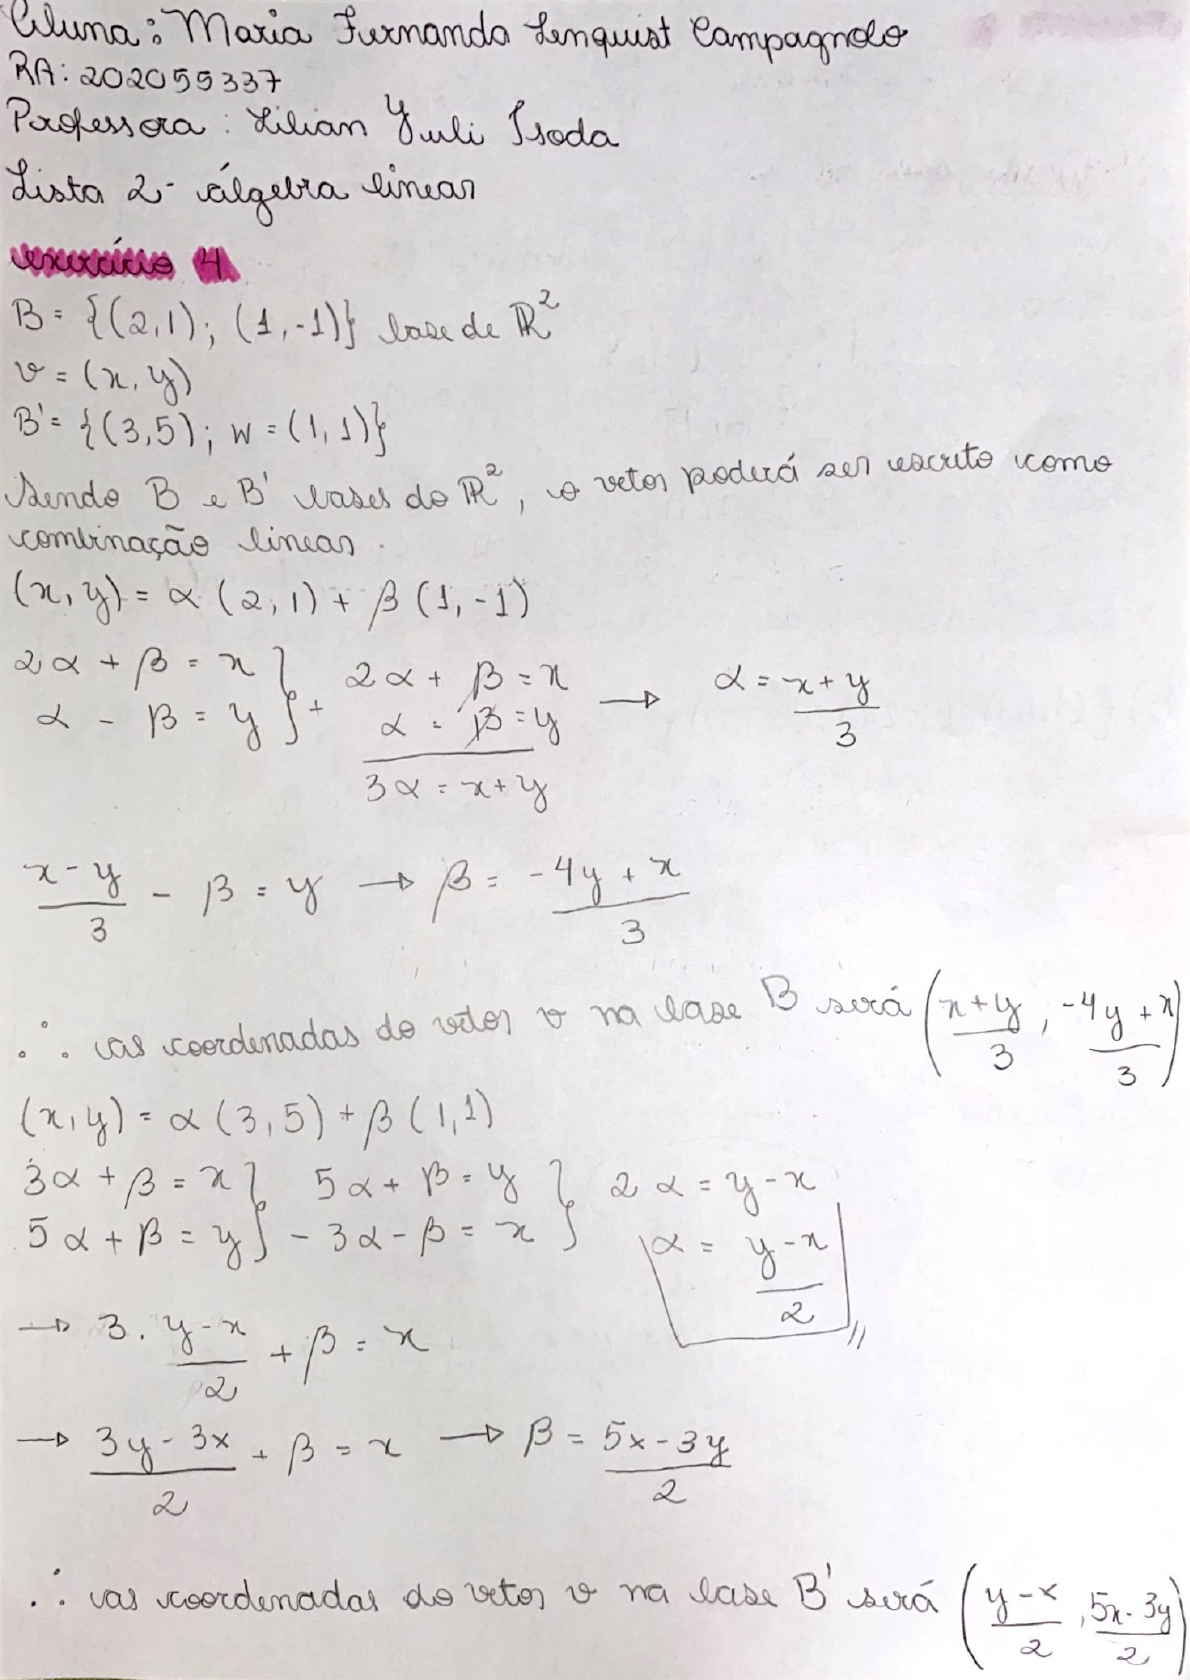 Aluna: Maria Fernanda Lenquist Campagnolo
RA: 202055337
Professora: Lilian Yuli Isoda
Lista 2 - álgebra linear
exercício 4
B = {(2,1); (1,-1)} base de ℝ²
v = (x, y)
B' = {(3,5); w = (1,1)}
Sendo B e B' bases do ℝ², o vetor poderá ser escrito como
combinação linear.
(x, y) = α (2,1) + β (1,-1)
2α + β = x } 2α + β = x → α = (x+y)/3
α - β = y } + α - β = y
3α = x + y
(x - y)/3 - β = y → β = (-4y + x)/3
∴ as coordenadas do vetor v na base B será ((x+y)/3, (-4y + x)/3)
(x, y) = α (3,5) + β (1,1)
3α + β = x } 5α + β = y } 2α = y - x
5α + β = y } - 3α - β = x } α = (y - x)/2 //
→ 3 . (y - x)/2 + β = x
→ (3y - 3x)/2 + β = x → β = (5x - 3y)/2
∴ as coordenadas do vetor v na base B' será ((y - x)/2, (5x - 3y)/2)